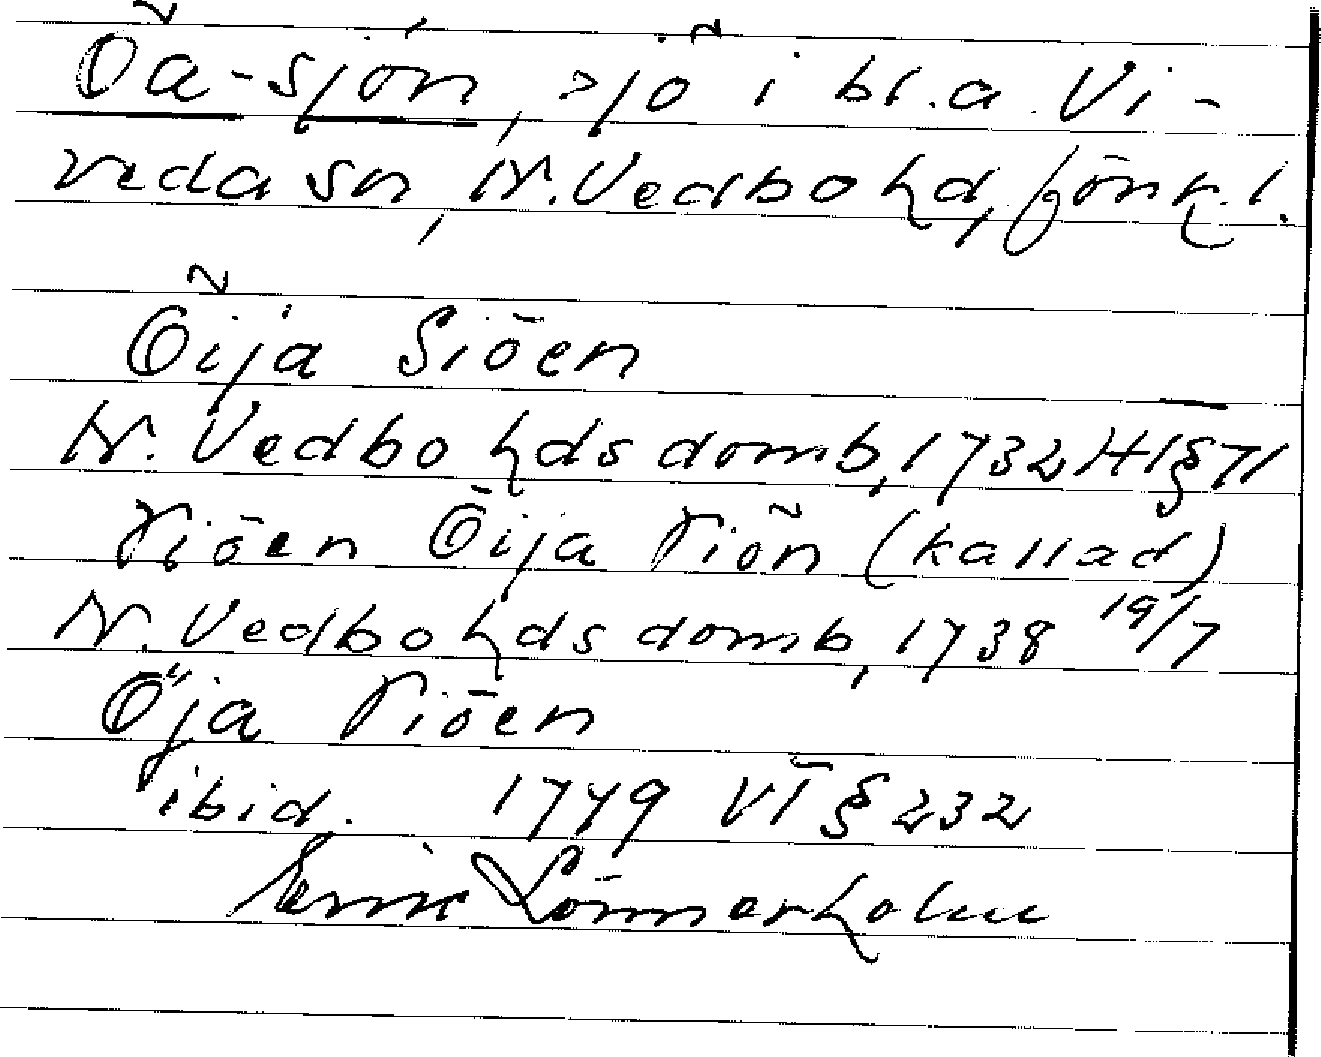 Öa-sjön, sjö i bl.a. Vi-
reda sn, N. Vedbo hd, Jönk. l.
Öija Siöen
N. Vedbo hds domb, 1732 HI § 71
Siöen Öija Siön (kallad)
N. Vedbo hds domb, 1738 19/7
Öja Siöen
ibid. 1749 VI § 232
Erik Lönnerholm